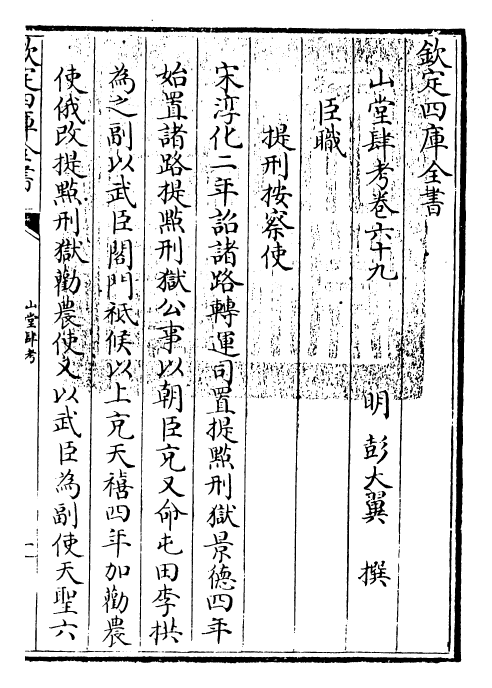 欽定四庫全書
山堂肆考卷六十九
明 彭大翼 撰
臣職
提刑按察使
宋淳化二年詔諸路轉運司置提點刑獄景德四年
始置諸路提點刑獄公事以朝臣充又命屯田李拱
為之副以武臣閤門祗候以上充天禧四年加勸農
使俄改提點刑獄勸農使又以武臣為副使天聖六
欽定四庫全書
山堂肆考
一